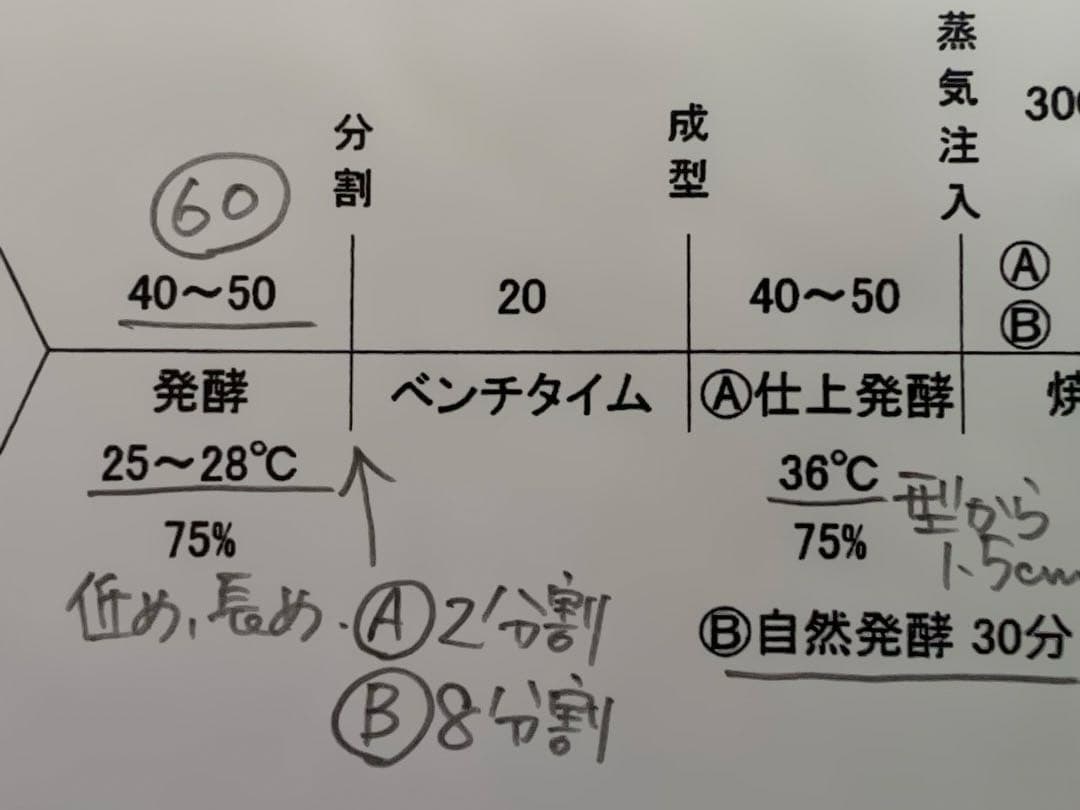 蒸気注入
300
分割
成型
60
40〜50
20
40〜50
Ⓐ
Ⓑ
発酵
ベンチタイム
Ⓐ仕上発酵
焼
25〜28℃
36℃
型から
1.5cm
75%
75%
低め、長め.
Ⓐ2分割
Ⓑ8分割
Ⓑ自然発酵 30分